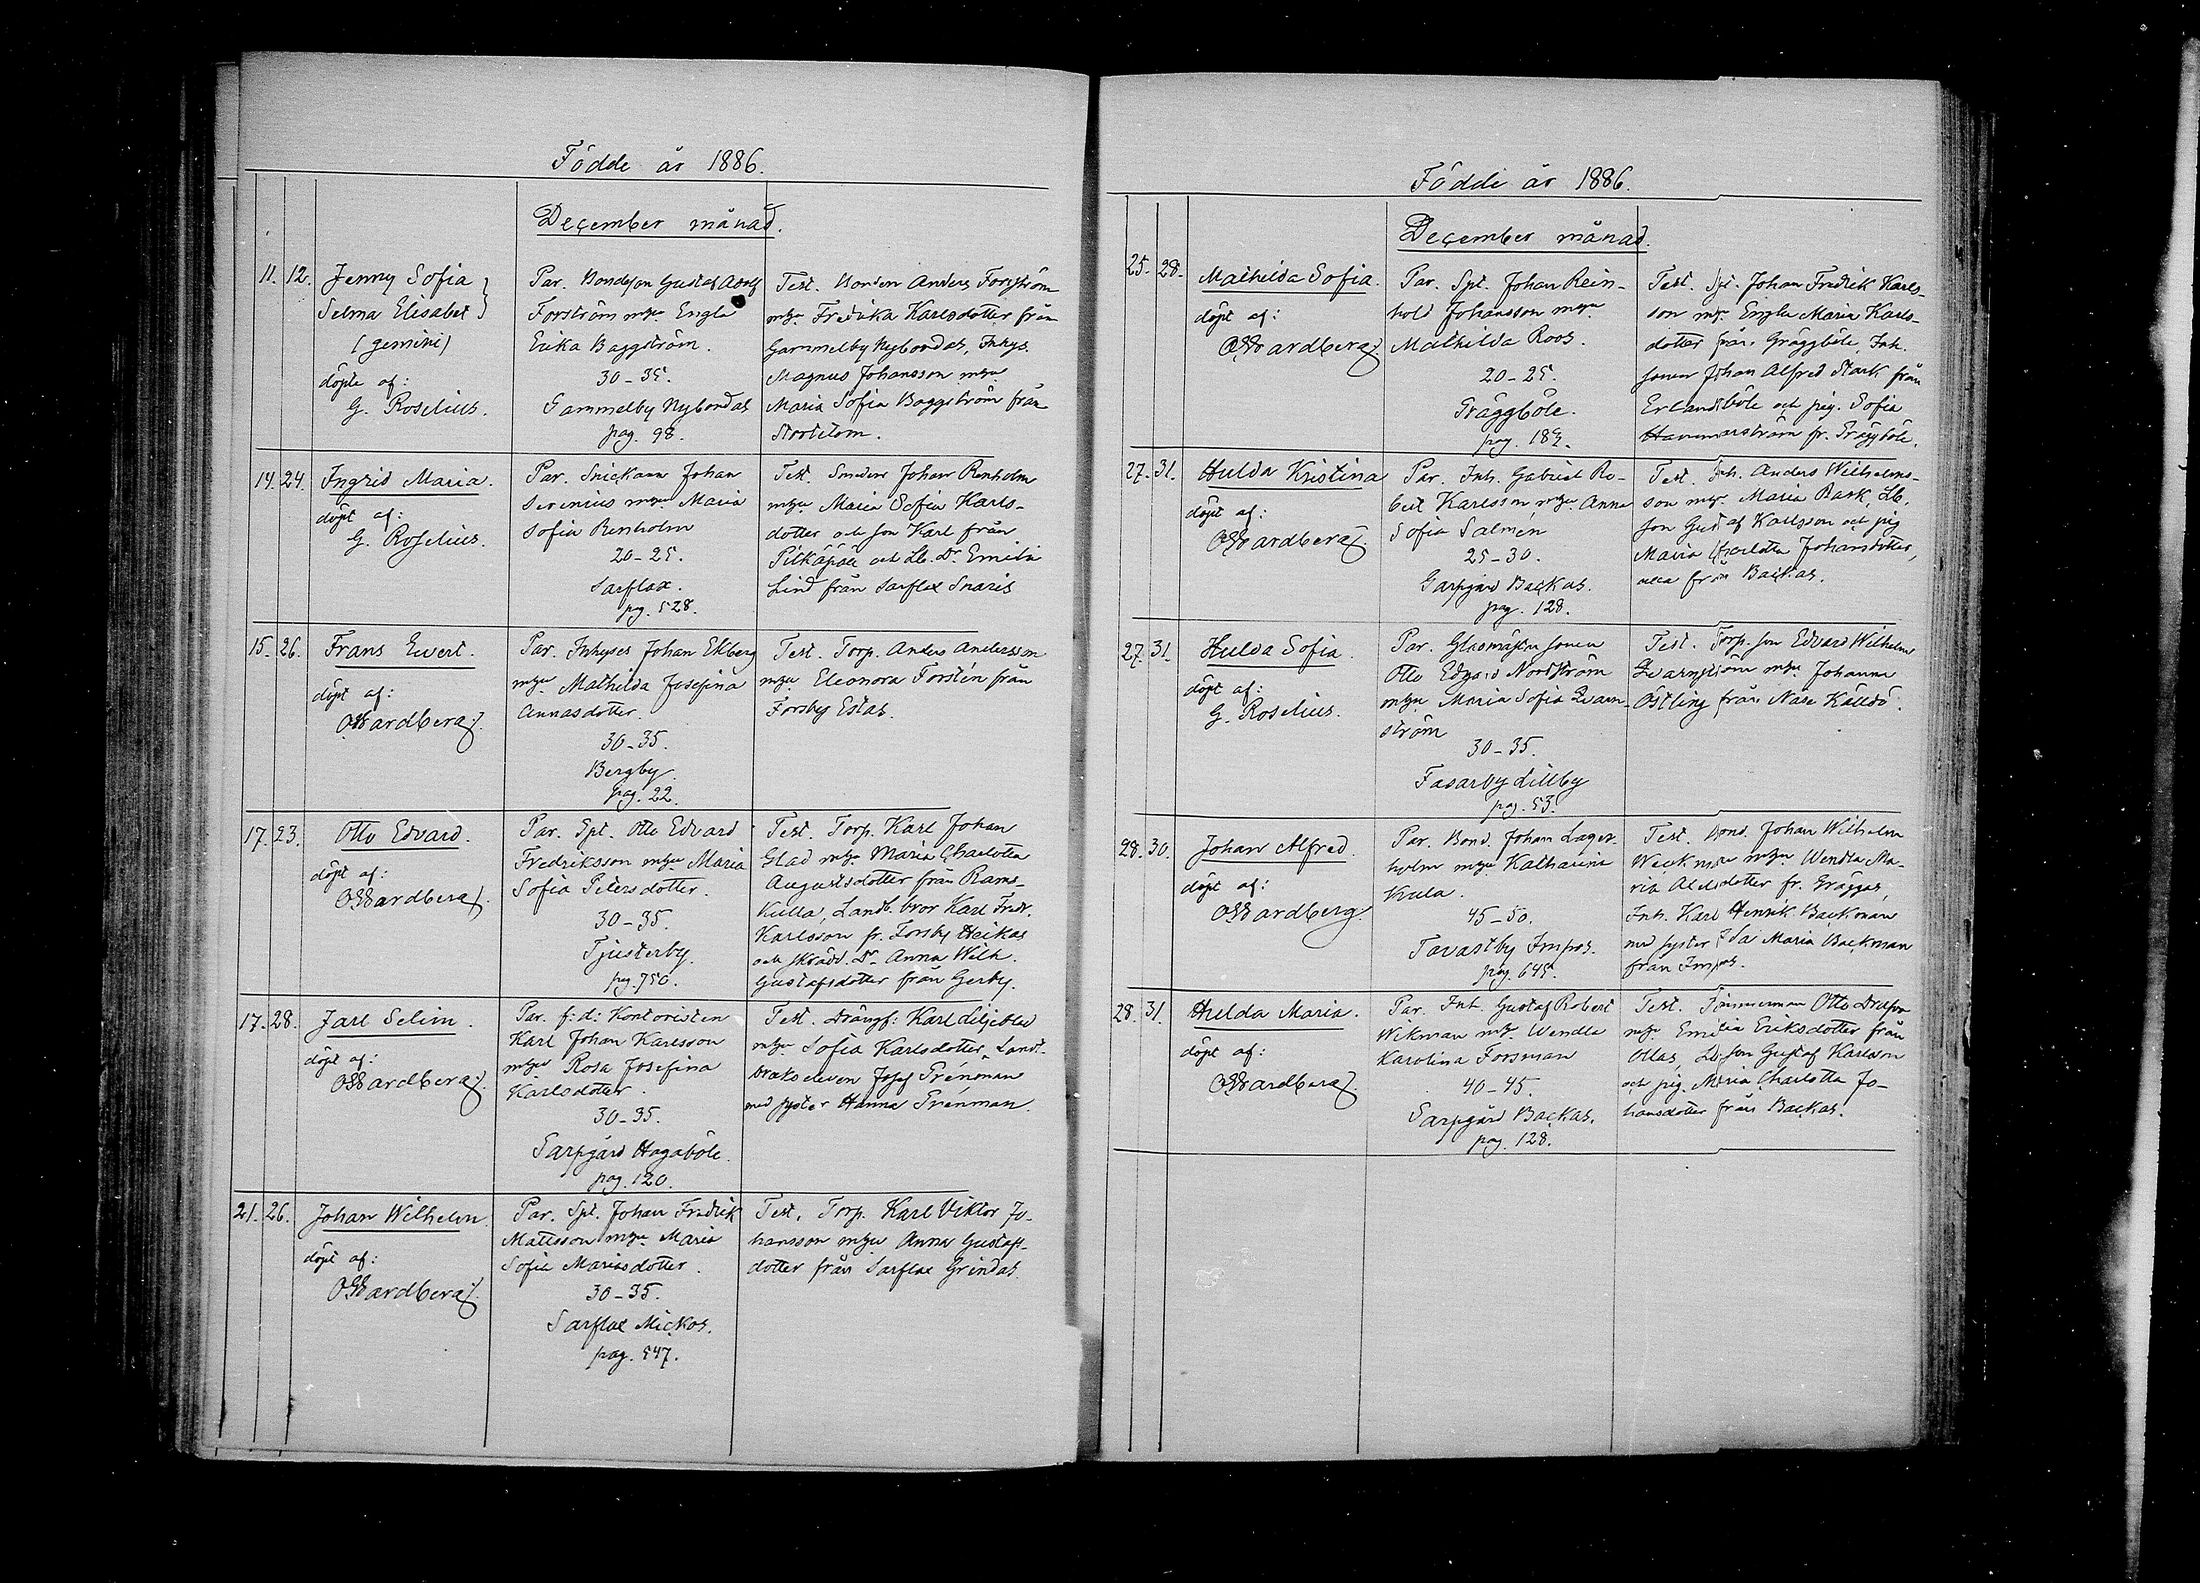 Födde år 1886.
December månad.
11. 12. Jenny Sofia
Selma Elisabet
(gemini)
döpte af:
G. Roselius.
Par. Bondeson Gustaf Adolf
Forström m hu Engla
Erika Baggström.
30-35.
Gammelby Nybondas
pag. 98.
Test. Bonden Anders Forsström
m hu Fredrika Karlsdotter från
Gammelby Nybondas, Inhys.
Magnus Johansson m hu
Maria Sofia Baggström från
14. 24. Ingrid Maria.
döpt af:
G. Roselius.
Par. Snickaren Johan
Serenius m hu Maria
Sofia Renholm
20-25.
Sarflax.
pg. 528.
Test. Smeden Johan Renholm
m hu Maria Sofia Karls-
dotter och son Karl från
Pitkäpää och Lb. Dr. Emilia
Lind från Sarflax Snaris
15. 26. Frans Evert.
döpt af:
OWardberg.
Par. Inhyses Johan Ekberg
m hu Mathilda Josefina
Annasdotter.
30-35.
Bergby.
pag. 22.
Test. Torp. Anders Andersson
m hu Eleonora Forstén från
Forsby Estas.
17. 23. Otto Edvard.
döpt af:
OWardberg.
Par. Spt. Otto Edvard
Fredriksson m hu Maria
Sofia Petersdotter.
30-35.
Tjusterby.
pg. 750.
Test. Torp. Karl Johan
Glad m hu Maria Charlotta
Augustsdotter från Rams-
kulla, Landb. bror Karl Fredr.
Karlsson fr. Forsby Heikas
och skrädd. Dr. Anna Wilh.
Gustafsdotter från Gerby.
17. 28. Jarl Selim.
döpt af:
OWardberg.
Par. f: d: Kontoristen
Karl Johan Karlsson
m hu Rosa Josefina
Karlsdotter.
30-35.
Sarfgård Hagaböle.
pag. 120.
Test. Drängf: Karl Liljeblad
m hu Sofia Karlsdotter, Landt-
bruks eleven Josef Trénman
med syster Hanna Trénman.
21. 26. Johan Wilhelm.
döpt af:
OWardberg.
Par. Spt. Johan Fredrik
Mattsson m hu Maria
Sofia Mariasdotter.
30-35.
Sarflax Mickos.
pag. 547.
Test. Torp. Karl Viktor Jo-
hansson m hu Anna Gustafs-
dotter från Sarflax Grindas.
Födde år 1886.
December månad.
25. 28. Mathilda Sofia.
döpt af:
OWardberg.
Par. Spt. Johan Rein-
hold Johansson m hu
Mathilda Roos.
20-25.
Gräggböle.
pag. 183.
Test. Spt. Johan Fredrik Karls-
son m hu Engla Maria Karls-
dotter från Gräggböle, Inh.
sonen Johan Alfred Stark från
Erlandsböle och pig. Sofia
Hammarström fr. Gräggböle.
27. 31. Hulda Kristina
döpt af:
OWardberg.
Par. Inh. Gabriel Ro-
bert Karlsson m hu Anna
Sofia Salmén
25-30.
Garpgård Backas.
pag. 128.
Test. Inh. Anders Wilhelms-
son m hu Maria Bark, Lb.
son Gustaf Karlsson och pig
Maria Charlotta Johansdotter,
alla från Backas.
27. 31. Hulda Sofia.
döpt af:
G. Roselius.
Par. Glasmäst. sonen
Otto Edvard Nordström
m hu Maria Sofia Qvarn-
ström
30-35.
Fasarby Lillby
pag. 53.
Test. Torp. son Edvard Wilhelm
Qvarnström m hu Johanna
Östling från Näse Källdö.
28. 30. Johan Alfred.
döpt af:
OWardberg
Par. Bond. Johan Lager-
holm m hu Katharina
Kula.
45-50.
Tavastby Impos.
pag. 645.
Test. Bond. Johan Wilhelm
Weckman m hu Wendla Ma-
ria fr. Gräggas,
Inh. Karl Henrik Backman
med syster Ida Maria Backman
från Impos.
28. 31. Hulda Maria.
döpt af:
OWardberg.
Par. Inh. Gustaf Robert
Wikman m hu Wendla
Karolina Forsman
40-45.
Garpgård Backas.
pag. 128.
Test. Timmerman Otto
m hu Emilia Eriksdotter från
Ollas, Lb. son Gustaf Karlsson
och pig. Maria Charlotta Jo-
hansdotter från Backas.